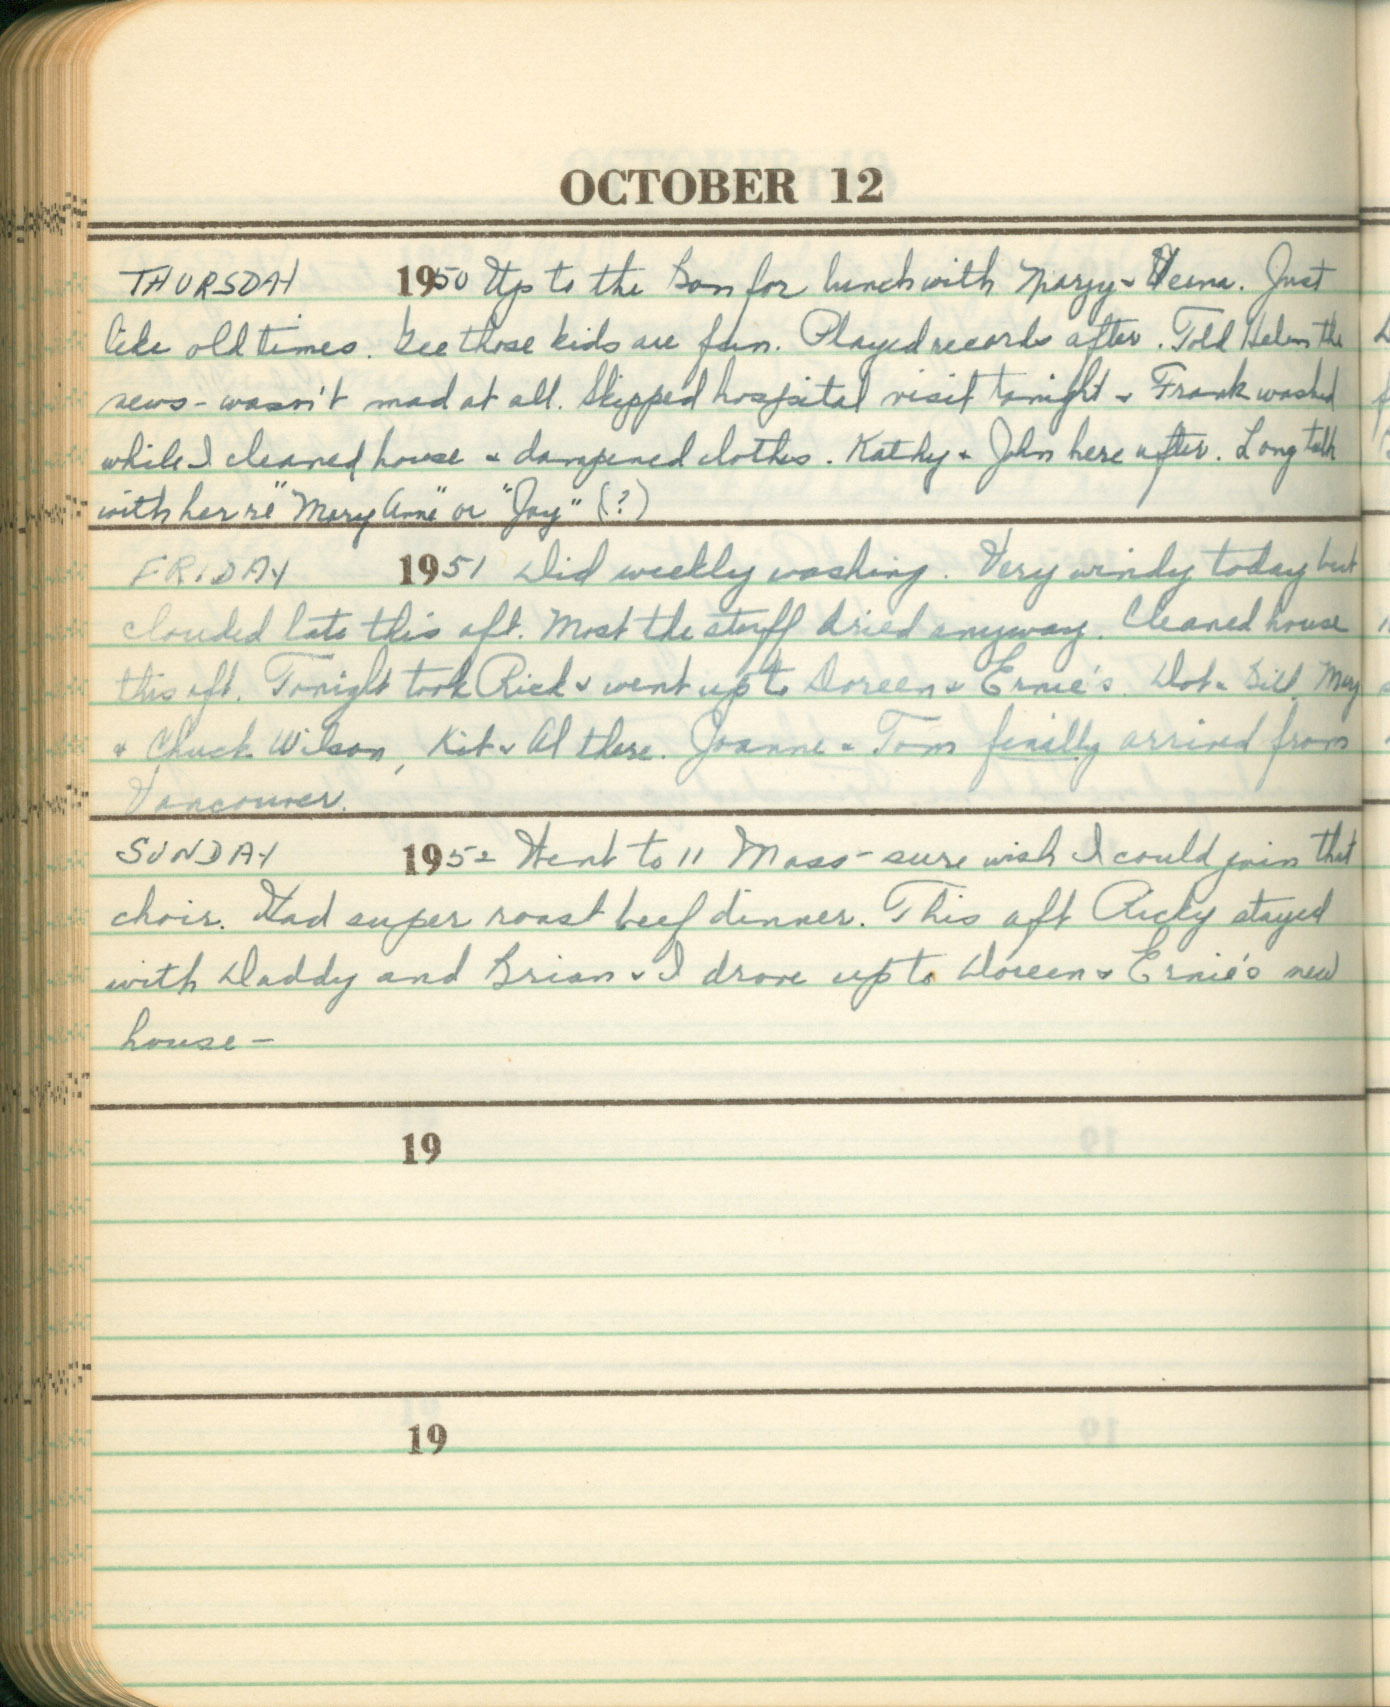 OCTOBER 12
THURSDAY 1950 Up to the Bon for lunch with Margy & Verna. Just
like old times. Gee those kids are fun. Played records after. Told Helen the
news - wasn't mad at all. Skipped hospital visit tonight & Frank washed
while I cleaned house & dampened clothes. Kathy & John here after. Long talk
with her re "Mary Anne" or "Jay" (?)
FRIDAY 1951 Did weekly washing. Very windy today but
clouded late this aft. Most the stuff dried anyway. Cleaned house
this aft. Tonight took Rick & went up to Doreen & Ernie's. Dot & Bill, Mary
& Chuck Wilson, Kit & Al there. Joanne & Tom finally arrived from
Vancouver.
SUNDAY 1952 Went to 11 Mass - sure wish I could join that
choir. Had super roast beef dinner. This aft Ricky stayed
with Daddy and Brian & I drove up to Doreen & Ernie's new
house -
19
19